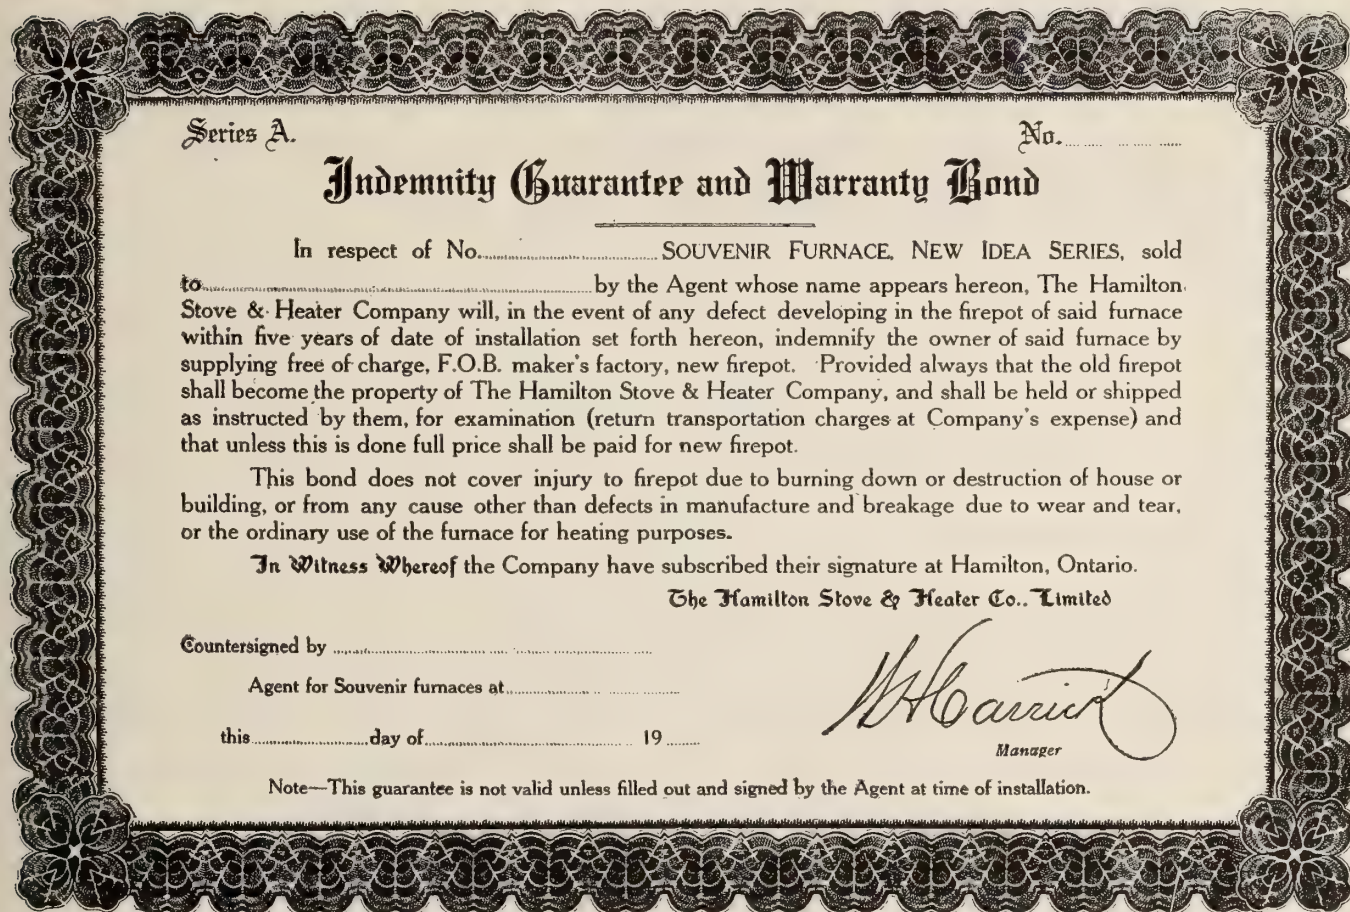 Series A. No.
Indemnity Guarantee and Warranty Bond
In respect of No. SOUVENIR FURNACE, NEW IDEA SERIES, sold
to by the Agent whose name appears hereon, The Hamilton
Stove & Heater Company will, in the event of any defect developing in the firepot of said furnace
within five years of date of installation set forth hereon, indemnify the owner of said furnace by
supplying free of charge, F.O.B. maker's factory, new firepot. Provided always that the old firepot
shall become the property of The Hamilton Stove & Heater Company, and shall be held or shipped
as instructed by them, for examination (return transportation charges at Company's expense) and
that unless this is done full price shall be paid for new firepot.
This bond does not cover injury to firepot due to burning down or destruction of house or
building, or from any cause other than defects in manufacture and breakage due to wear and tear,
or the ordinary use of the furnace for heating purposes.
In Witness Whereof the Company have subscribed their signature at Hamilton, Ontario.
The Hamilton Stove & Heater Co., Limited
Countersigned by
Agent for Souvenir furnaces at
WHCarrick
this day of 19
Manager
Note—This guarantee is not valid unless filled out and signed by the Agent at time of installation.